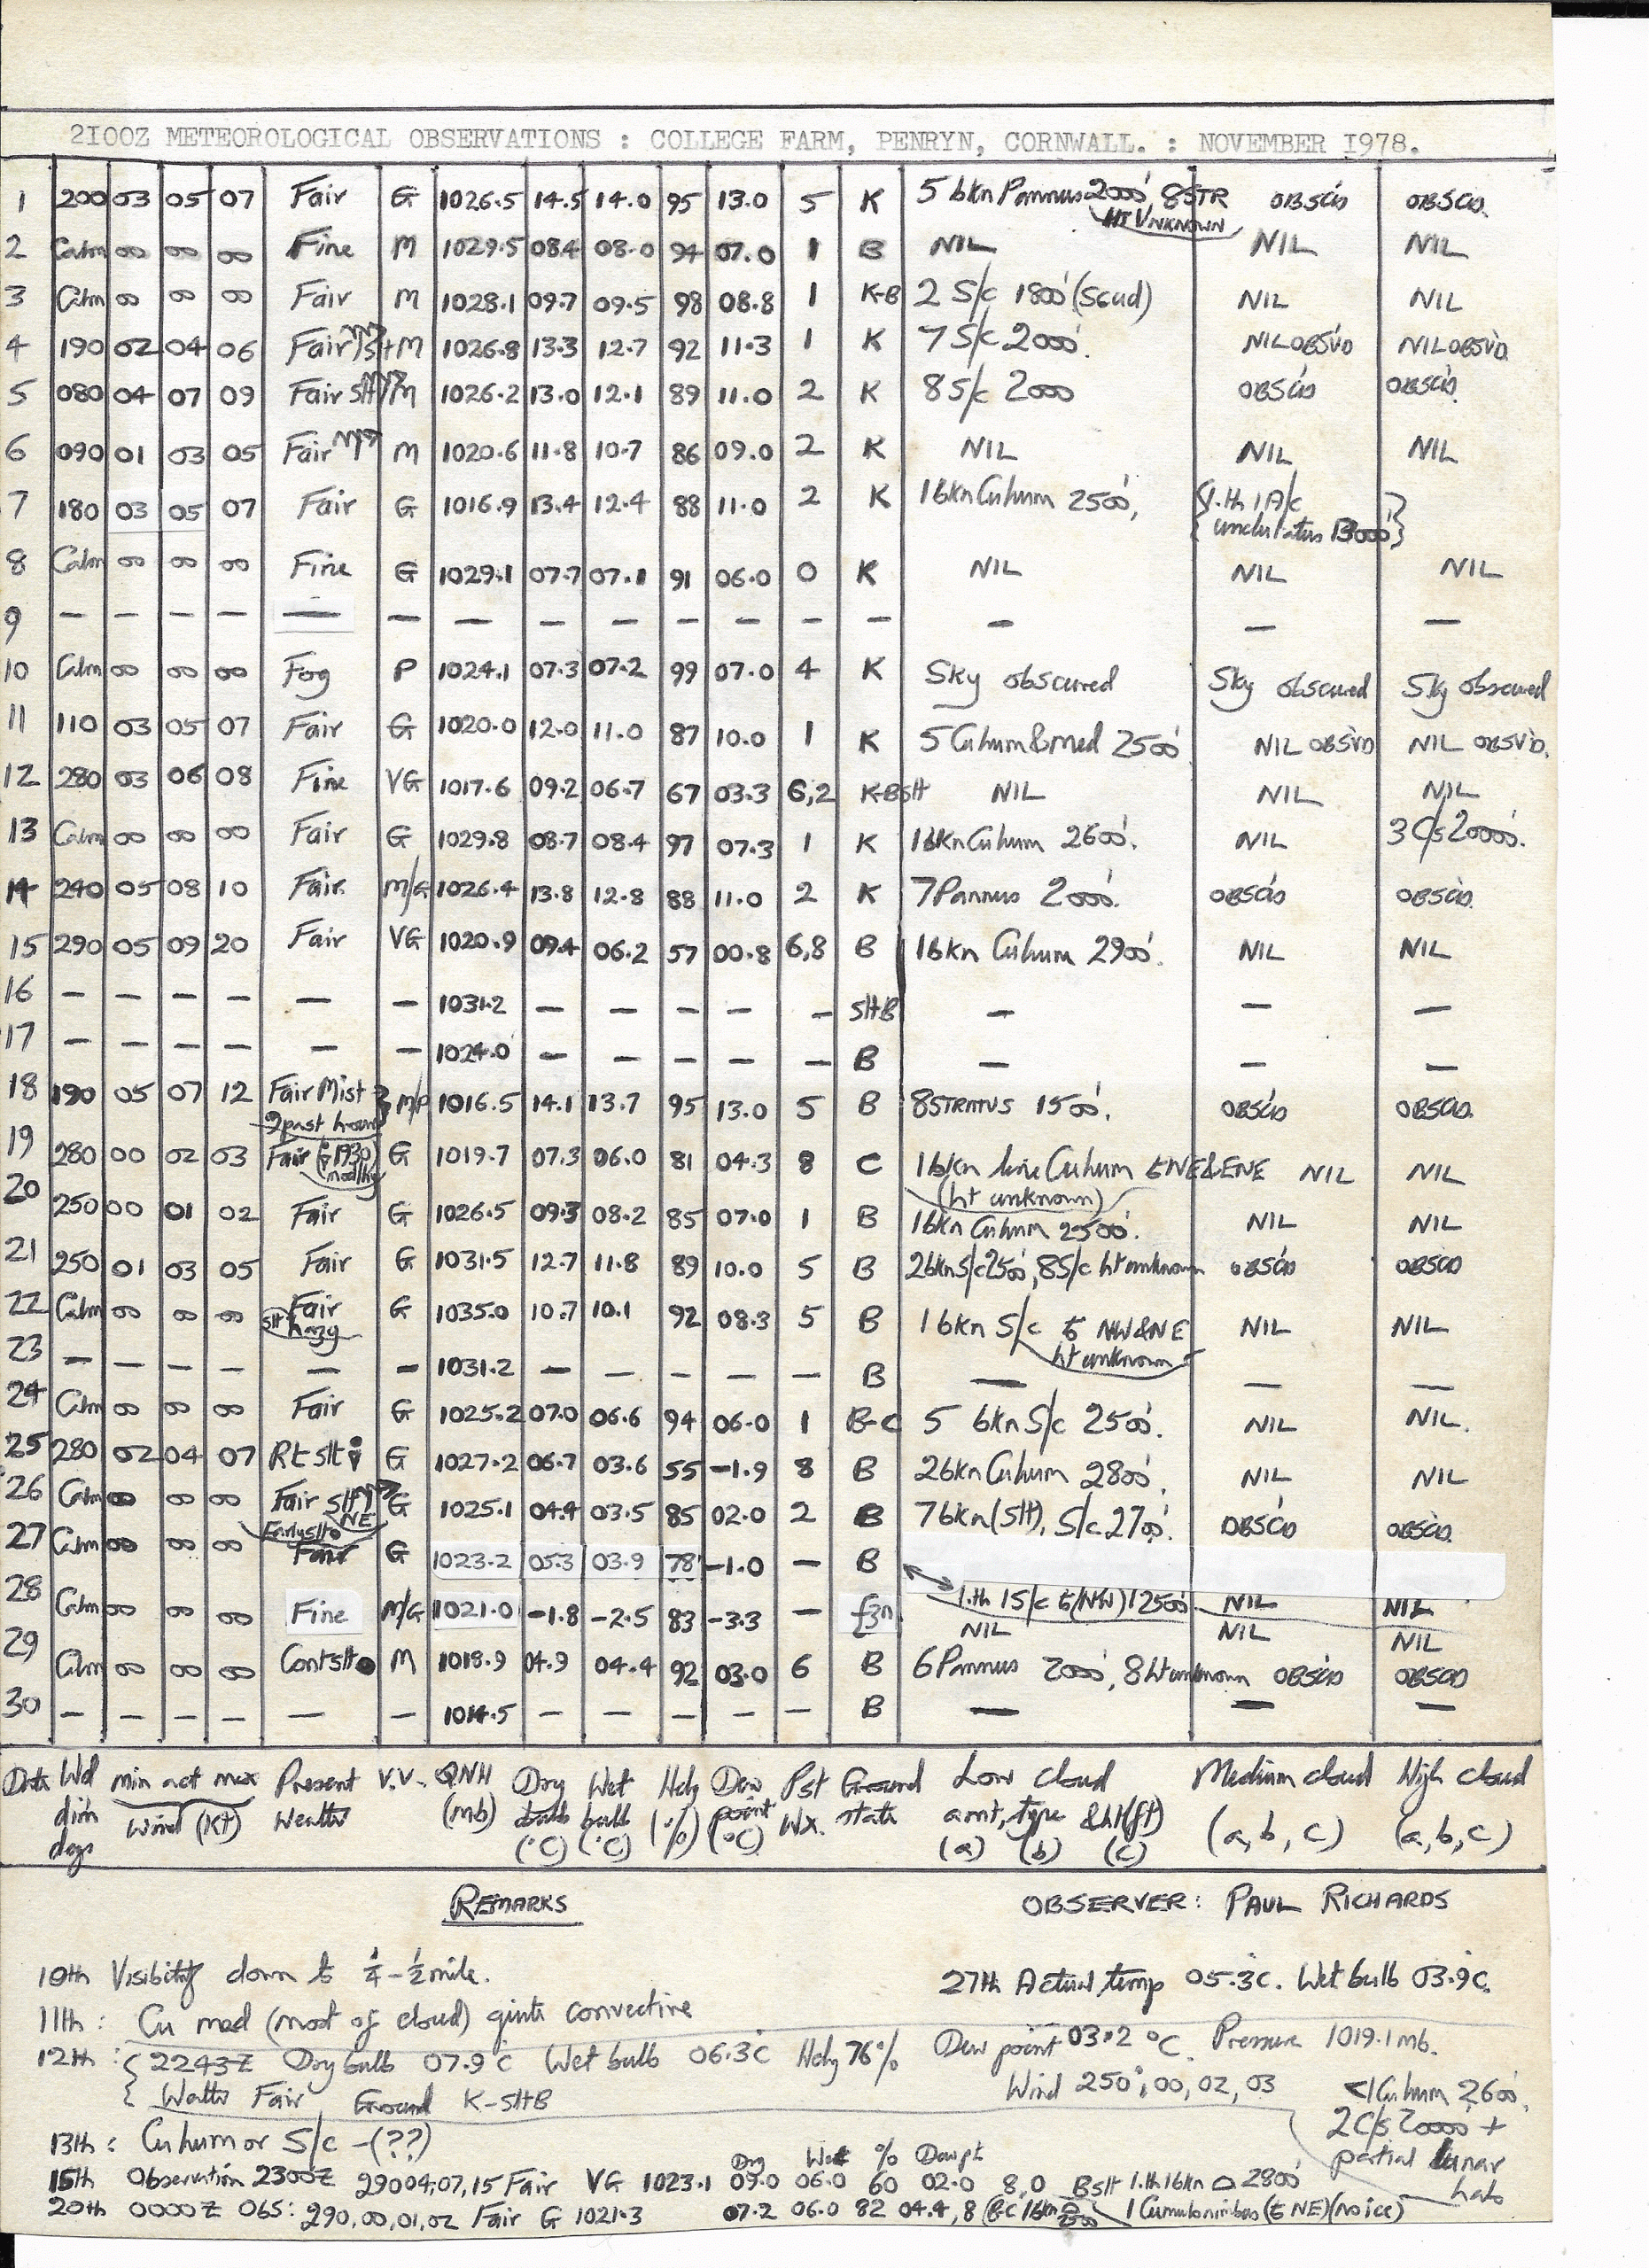 2IOOZ METEOROLOGICAL OBSERVATIONS : COLLEGE FARM, PENRYN, CORNWALL. : NOVEMBER I978.
1 200 03 05 07 Fair G 1026.5 14.5 14.0 95 13.0 5 K 5 bkn Pannus 2000' 8STR HT UNKNOWN OBSC'D OBSC'D.
2 Calm 00 00 00 Fine M 1029.5 08.4 08.0 94 07.0 1 B NIL NIL NIL
3 Calm 00 00 00 Fair M 1028.1 09.7 09.5 98 08.8 1 K-B 2 S/c 1800' (Scud) NIL NIL
4 190 02 04 06 Fair M 1026.8 13.3 12.7 92 11.3 1 K 7 S/c 2000'. NIL OBSV'D NIL OBSV'D.
5 080 04 07 09 Fair slt M 1026.2 13.0 12.1 89 11.0 2 K 8 S/c 2000 OBSC'D OBSC'D.
6 090 01 03 05 Fair M 1020.6 11.8 10.7 86 09.0 2 K NIL NIL NIL
7 180 03 05 07 Fair G 1016.9 13.4 12.4 88 11.0 2 K 1 bkn Cu hum 2500', {l.th 1 A/c undulatus 13000'}
8 Calm 00 00 00 Fine G 1029.1 07.7 07.1 91 06.0 0 K NIL NIL NIL
9 — — — — — — — — — — — — — — — —
10 Calm 00 00 00 Fog P 1024.1 07.3 07.2 99 07.0 4 K Sky obscured Sky obscured Sky obscured
11 110 03 05 07 Fair G 1020.0 12.0 11.0 87 10.0 1 K 5 Cu hum & med 2500' NIL OBSV'D NIL OBSV'D.
12 280 03 06 08 Fine VG 1017.6 09.2 06.7 67 03.3 6,2 K-Bslt NIL NIL NIL
13 Calm 00 00 00 Fair G 1029.8 08.7 08.4 97 07.3 1 K 1 bkn Cu hum 2600'. NIL 3 C/s 20000'.
14 240 05 08 10 Fair. M/G 1026.4 13.8 12.8 88 11.0 2 K 7 Pannus 2000'. OBSC'D OBSC'D.
15 290 05 09 20 Fair VG 1020.9 09.4 06.2 57 00.8 6,8 B 1 bkn Cu hum 2900'. NIL NIL
16 — — — — — — 1031.2 — — — — — slt B — — —
17 — — — — — — 1024.0 — — — — — B — — —
18 190 05 07 12 Fair Mist past hour M/P 1016.5 14.1 13.7 95 13.0 5 B 8 STRATUS 1500'. OBSC'D OBSC'D.
19 280 00 02 03 Fair (1930) G 1019.7 07.3 06.0 81 04.3 8 C 1 bkn line Cu hum to NE & ENE (ht unknown) NIL NIL
20 250 00 01 02 Fair G 1026.5 09.3 08.2 85 07.0 1 B 1 bkn Cu hum 2500'. NIL NIL
21 250 01 03 05 Fair G 1031.5 12.7 11.8 89 10.0 5 B 2 bkn S/c 2500', 8 S/c ht unknown OBSC'D OBSC'D
22 Calm 00 00 00 Fair slt hazy G 1035.0 10.7 10.1 92 08.3 5 B 1 bkn S/c to NW & NE ht unknown NIL NIL
23 — — — — — — 1031.2 — — — — — B — — —
24 Calm 00 00 00 Fair G 1025.2 07.0 06.6 94 06.0 1 B-C 5 bkn S/c 2500'. NIL NIL.
25 280 02 04 07 Rt slt G 1027.2 06.7 03.6 55 -1.9 8 B 2 bkn Cu hum 2800'. NIL NIL
26 Calm 00 00 00 Fair slt NE G 1025.1 04.4 03.5 85 02.0 2 B 7 bkn (slt), S/c 2700'. OBSC'D OBSC'D.
27 Calm 00 00 00 Fair G 1023.2 05.3 03.9 78 -1.0 — B l.th 1 S/c to (NW) 12500' NIL NIL
28 Calm 00 00 00 Fine M/G 1021.0 -1.8 -2.5 83 -3.3 — fzn NIL NIL NIL
29 Calm 00 00 00 Cont slt M 1018.9 04.9 04.4 92 03.0 6 B 6 Pannus 2000', 8 ht unknown OBSC'D OBSC'D
30 — — — — — — 1014.5 — — — — — B — — —
Date Wd dirn degs min act max Wind (Kt) Present Weather V.V. QNH (mb) Dry bulb (°C) Wet bulb (°C) Hdy (%) Dew point (°C) Pst Wx. Ground state Low cloud amt, type & ht (ft) (a) (b) (c) Medium cloud (a, b, c) High cloud (a, b, c)
REMARKS
OBSERVER: PAUL RICHARDS
10th Visibility down to 1/4 - 1/2 mile.
27th Actual temp 05.3°C. Wet bulb 03.9°C.
11th: Cu med (most of cloud) quite convective
Dew point 03.2 °C. Pressure 1019.1 mb.
12th: {2243Z Dry bulb 07.9°C Wet bulb 06.3°C Hdy 76%
Wind 250°, 00, 02, 03 <1 Cu hum 2600',
Weather Fair Ground K-slt B
2 C/s 20000' +
13th: Cu hum or S/c - (??)
partial lunar halo
Dry Wet % Dew pt
15th Observation 2300Z 29004,07,15 Fair VG 1023.1 09.0 06.0 60 02.0 8,0 Bslt l.th 1 bkn 2800'
20th 0000Z OBS: 290,00,01,02 Fair G 1021.3 07.2 06.0 82 04.4, 8 B-C 1 bkn 2500 1 Cumulonimbus (to NE) (no ice)